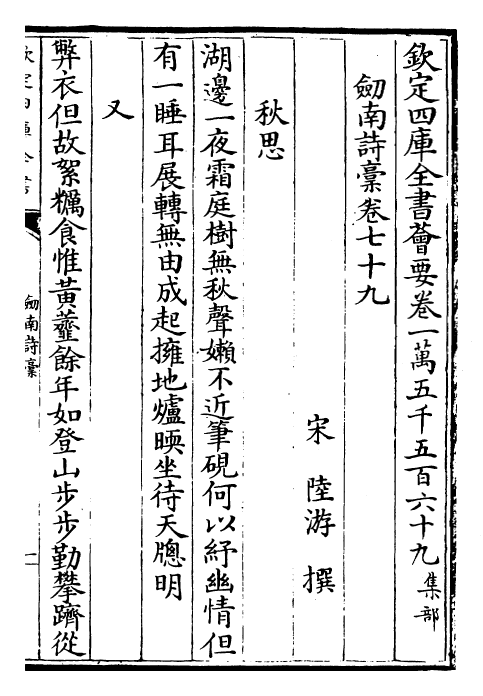 欽定四庫全書薈要卷一萬五千五百六十九集部
劒南詩藁卷七十九
宋陸游撰
秋思
湖邊一夜霜庭樹無秋聲嬾不近筆硯何以紓幽情但
有一睡耳展轉無由成起擁地爐暎坐待天牕明
又
弊衣但故絮糲食惟黃虀餘年如登山步步勤攀躋從
劒南詩藁